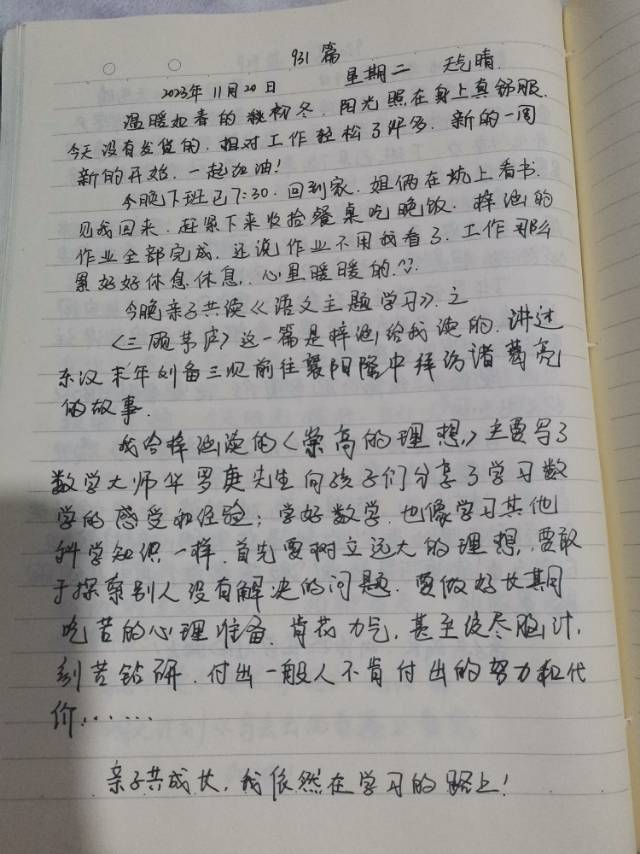 931 篇
2023年 11月 20日 星期二 天气晴
温暖如春的秋初冬. 阳光照在身上真舒服.
今天没有发货的. 相对工作轻松了许多. 新的一周
新的开始. 一起加油!
今晚下班已7:30. 回到家. 姐俩在炕上看书.
见我回来. 赶紧下来收拾餐桌吃晚饭. 梓涵的
作业全部完成. 还说作业不用我看了. 工作那么
累好好休息休息. 心里暖暖的
今晚亲子共读《语文主题学习》. 之
《三顾茅庐》这一篇是梓涵给我读的. 讲述
东汉末年刘备三次前往襄阳隆中拜访诸葛亮
的故事.
我给梓涵读的《崇高的理想》主要写了
数学大师华罗庚先生向孩子们分享了学习数
学的感受和经验; 学好数学. 也像学习其他
科学知识一样. 首先要树立远大的理想. 要敢
于探索别人没有解决的问题. 要做好长期
吃苦的心理准备. 肯花力气, 甚至绞尽脑汁,
刻苦钻研. 付出一般人不肯付出的努力和代
价......
亲子共成长, 我依然在学习的路上!